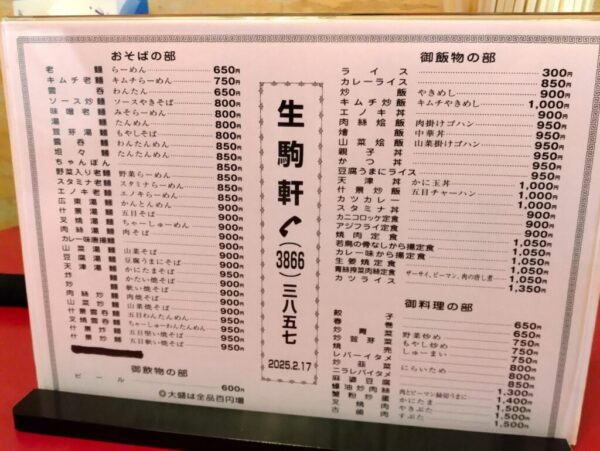 おそばの部
老麺 らーめん 650円
キムチ老麺 キムチらーめん 750円
雲呑 わんたん 650円
ソース炒麺 ソースやきそば 800円
味噌老麺 みそらーめん 800円
湯麺 たんめん 800円
荳芽湯麺 もやしそば 800円
雲呑麺 わんたんめん 850円
坦々麺 たんたんめん 850円
ちゃんぽん
野菜入り老麺 野菜らーめん
スタミナ老麺 スタミナらーめん
エノキ老麺 エノキらーめん
広東湯麺 かんとんめん
什景湯麺 五目そば
叉焼湯麺 ちゃーしゅーめん
肉絲湯麺 肉そば
カレー味唐揚麺
山菜湯麺 山菜そば
豆腐湯麺 豆腐うまにそば
天津湯麺 かにたまそば
炸麺 かたい焼そば
炒麺 軟い焼そば
肉絲炒麺 肉焼そば
山菜炒麺 山菜焼そば
什景雲呑麺 五目わんたんめん
叉焼雲呑麺 ちゃーしゅーわんたんめん
什景炸麺 五目堅い焼そば
什景炒麺 五目軟い焼そば
御飲物の部
ビール 600円
◎大盛は全品百円増
生駒軒
(3866)三八五七
2025.2.17
御飯物の部
ライス 300円
カレーライス 850円
炒飯 やきめし 900円
キムチ炒飯 キムチやきめし 1,000円
エノキ丼 900円
肉絲燴飯 肉掛けゴハン 950円
燴飯 中華丼 950円
山菜燴飯 山菜掛けゴハン 950円
親子丼 950円
かつ丼 950円
豆腐うまにライス 950円
天津丼 かに玉丼 1,000円
什景炒飯 五目チャーハン 1,000円
カツカレー 1,000円
スタミナ丼
カニコロッケ定食
アジフライ定食
焼肉定食
若鳥の骨なしから揚定食 1,050円
カレー味から揚定食 1,050円
生姜焼定食 1,050円
青絲搾菜肉絲定食 ザーサイ、ピーマン、肉の唐し煮 1,050円
カツライス 1,350円
御料理の部
餃子 650円
春巻 650円
炒青菜 野菜炒め 750円
炒荳芽菜 もやし炒め 750円
焼売 しゅーまい 750円
レバーイタメ
炒韮菜 にらいため 800円
ニラレバイタメ
麻婆豆腐 850円
蠔油炒肉絲 肉とピーマン細切うまに 1,300円
蟹粉炒蛋 かにたま 1,400円
叉焼肉 やきぶた 1,500円
古滷肉 すぶた 1,500円